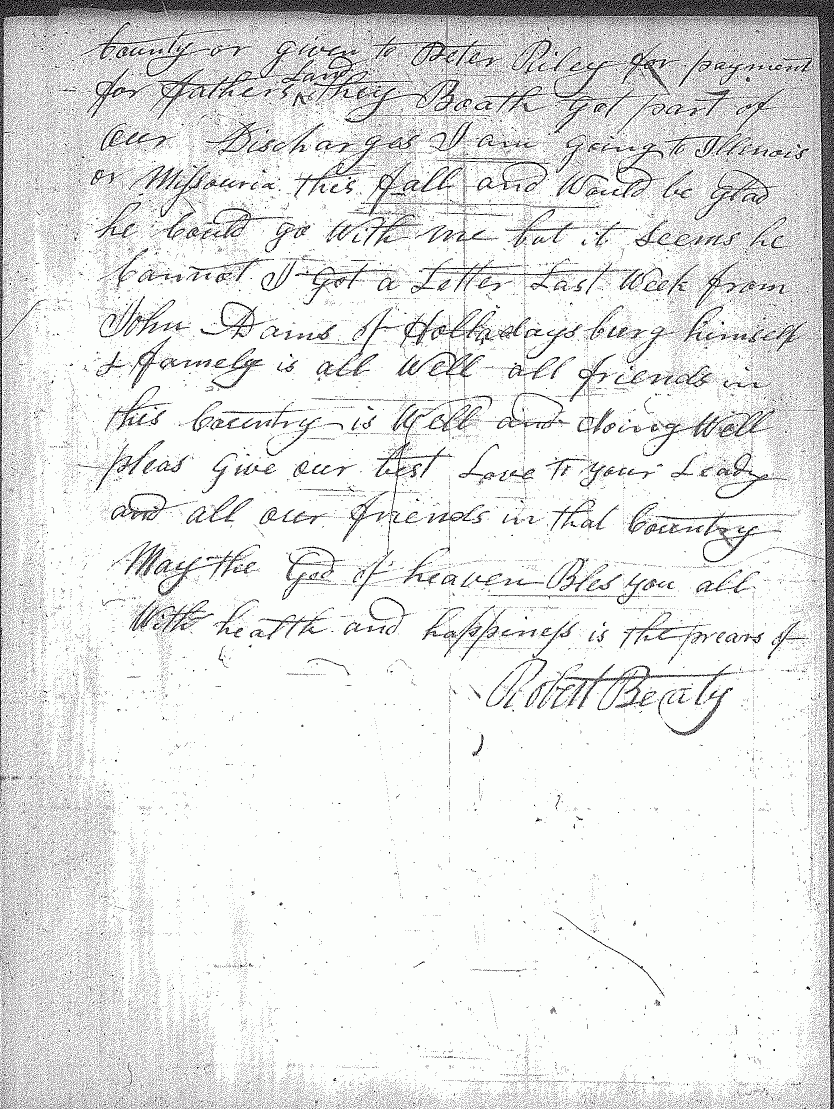 County or given to Peter Riley for payment
for fathers Land they Boath got part of
our Discharges I am going to Illinois
or Missouria this fall and Would be glad
he Could go With me but it seems he
Cannot I got a Letter Last Week from
John Adams of Holladaysburg himself
& famely is all Well all friends in
this Country is Well and doing Well
pleas give our best Love to your Leady
and all our friends in that Country
May the God of heaven Bles you all
With health and happiness is the prears of
Robert Beaty